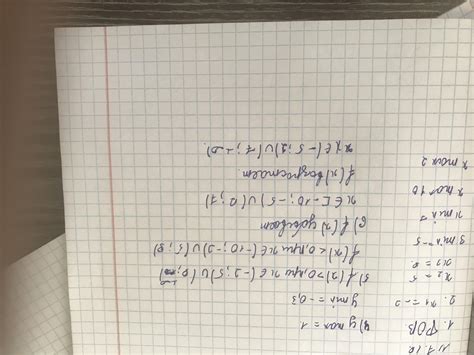 1. РОВ
2. x1 = -2
x2 = 5
x3 = 8
3. min -5
x min 7
x max 10
x max 2
4) y max = 1
y min = -0,3
5) f(x) >0, при x∈(-2; 5)∪(8; +∞)
f(x) <0, при x∈(-10; -2)∪(5; 8)
6) f(x) убывает
x∈[-10; -5)∪(2; 7)
f(x) возрастает
x∈(-5; 2)∪(7; +∞)